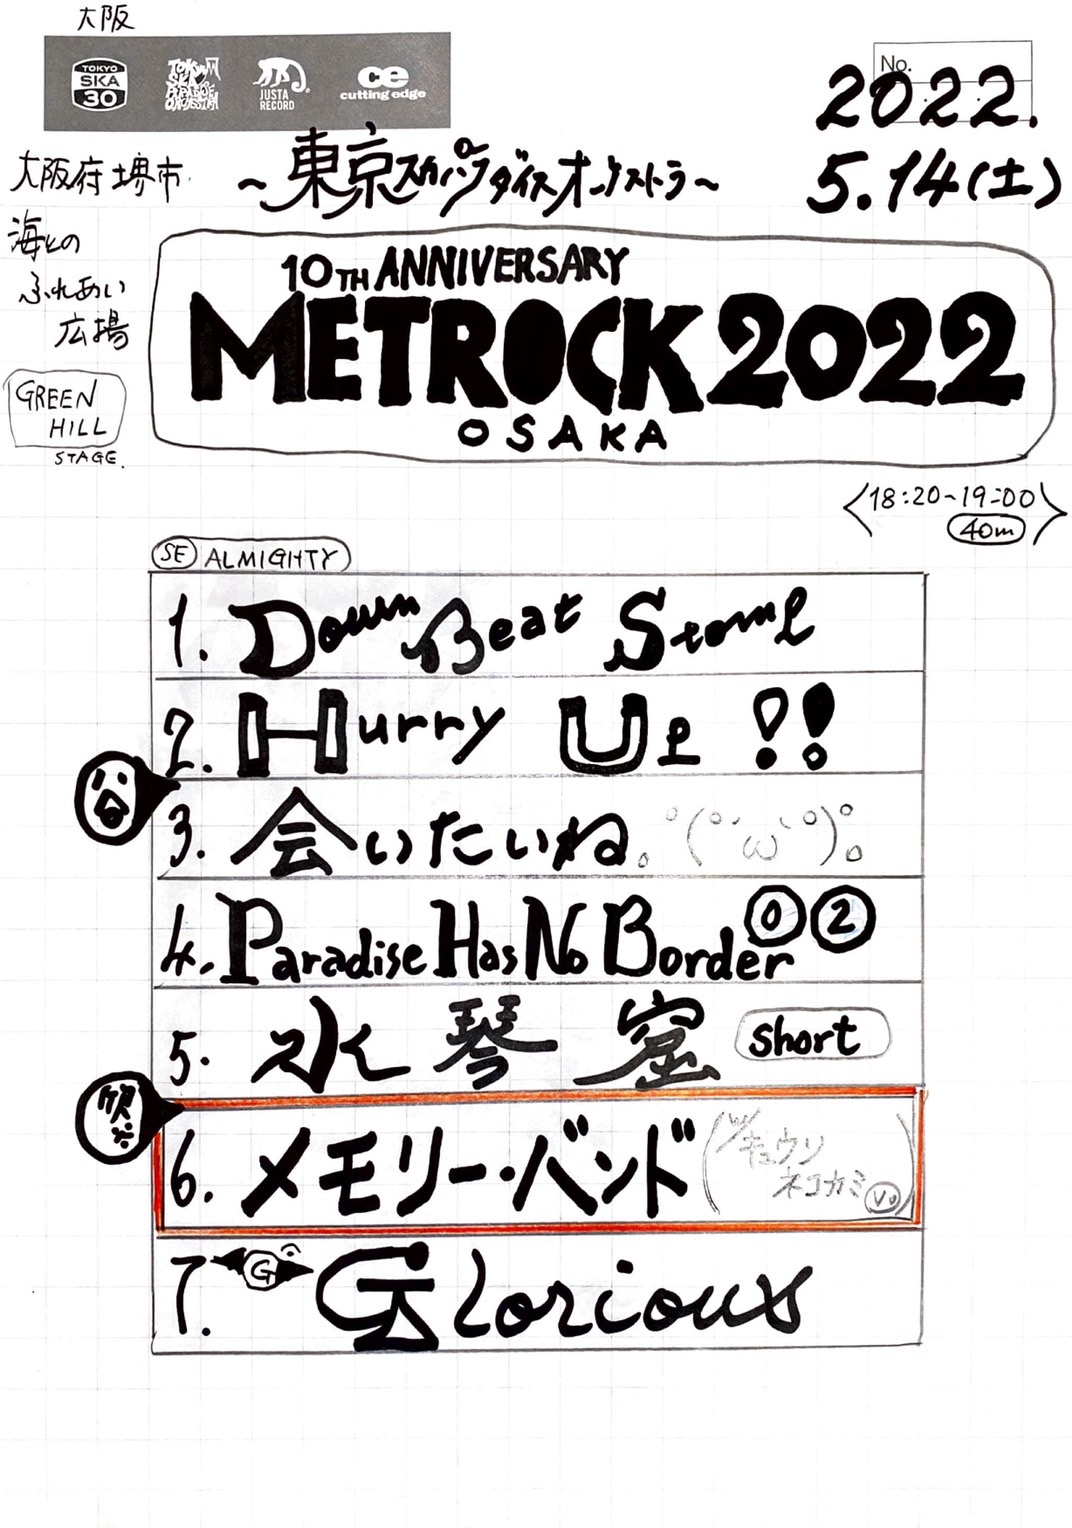 大阪
TOKYO SKA 30
TOKYO SKA PARADISE ORCHESTRA
JUSTA RECORD
ce
cutting edge
No.
2022.
5.14(土)
大阪府堺市
~東京スカパラダイスオーケストラ~
海との
ふれあい
広場
GREEN
HILL
STAGE.
10TH ANNIVERSARY
METROCK2022
OSAKA
<18:20~19:00>
40m
SE ALMIGHTY
1. Down Beat Stomp
2. Hurry Up !!
谷
3. 会いたいね。゜(゜´ω`゜)゜。
4. Paradise Has No Border ⓪ ②
5. 水琴窟 short
欣ちゃん
6. メモリー・バンド(w/キュウソネコカミ Vo)
7. G Glorious